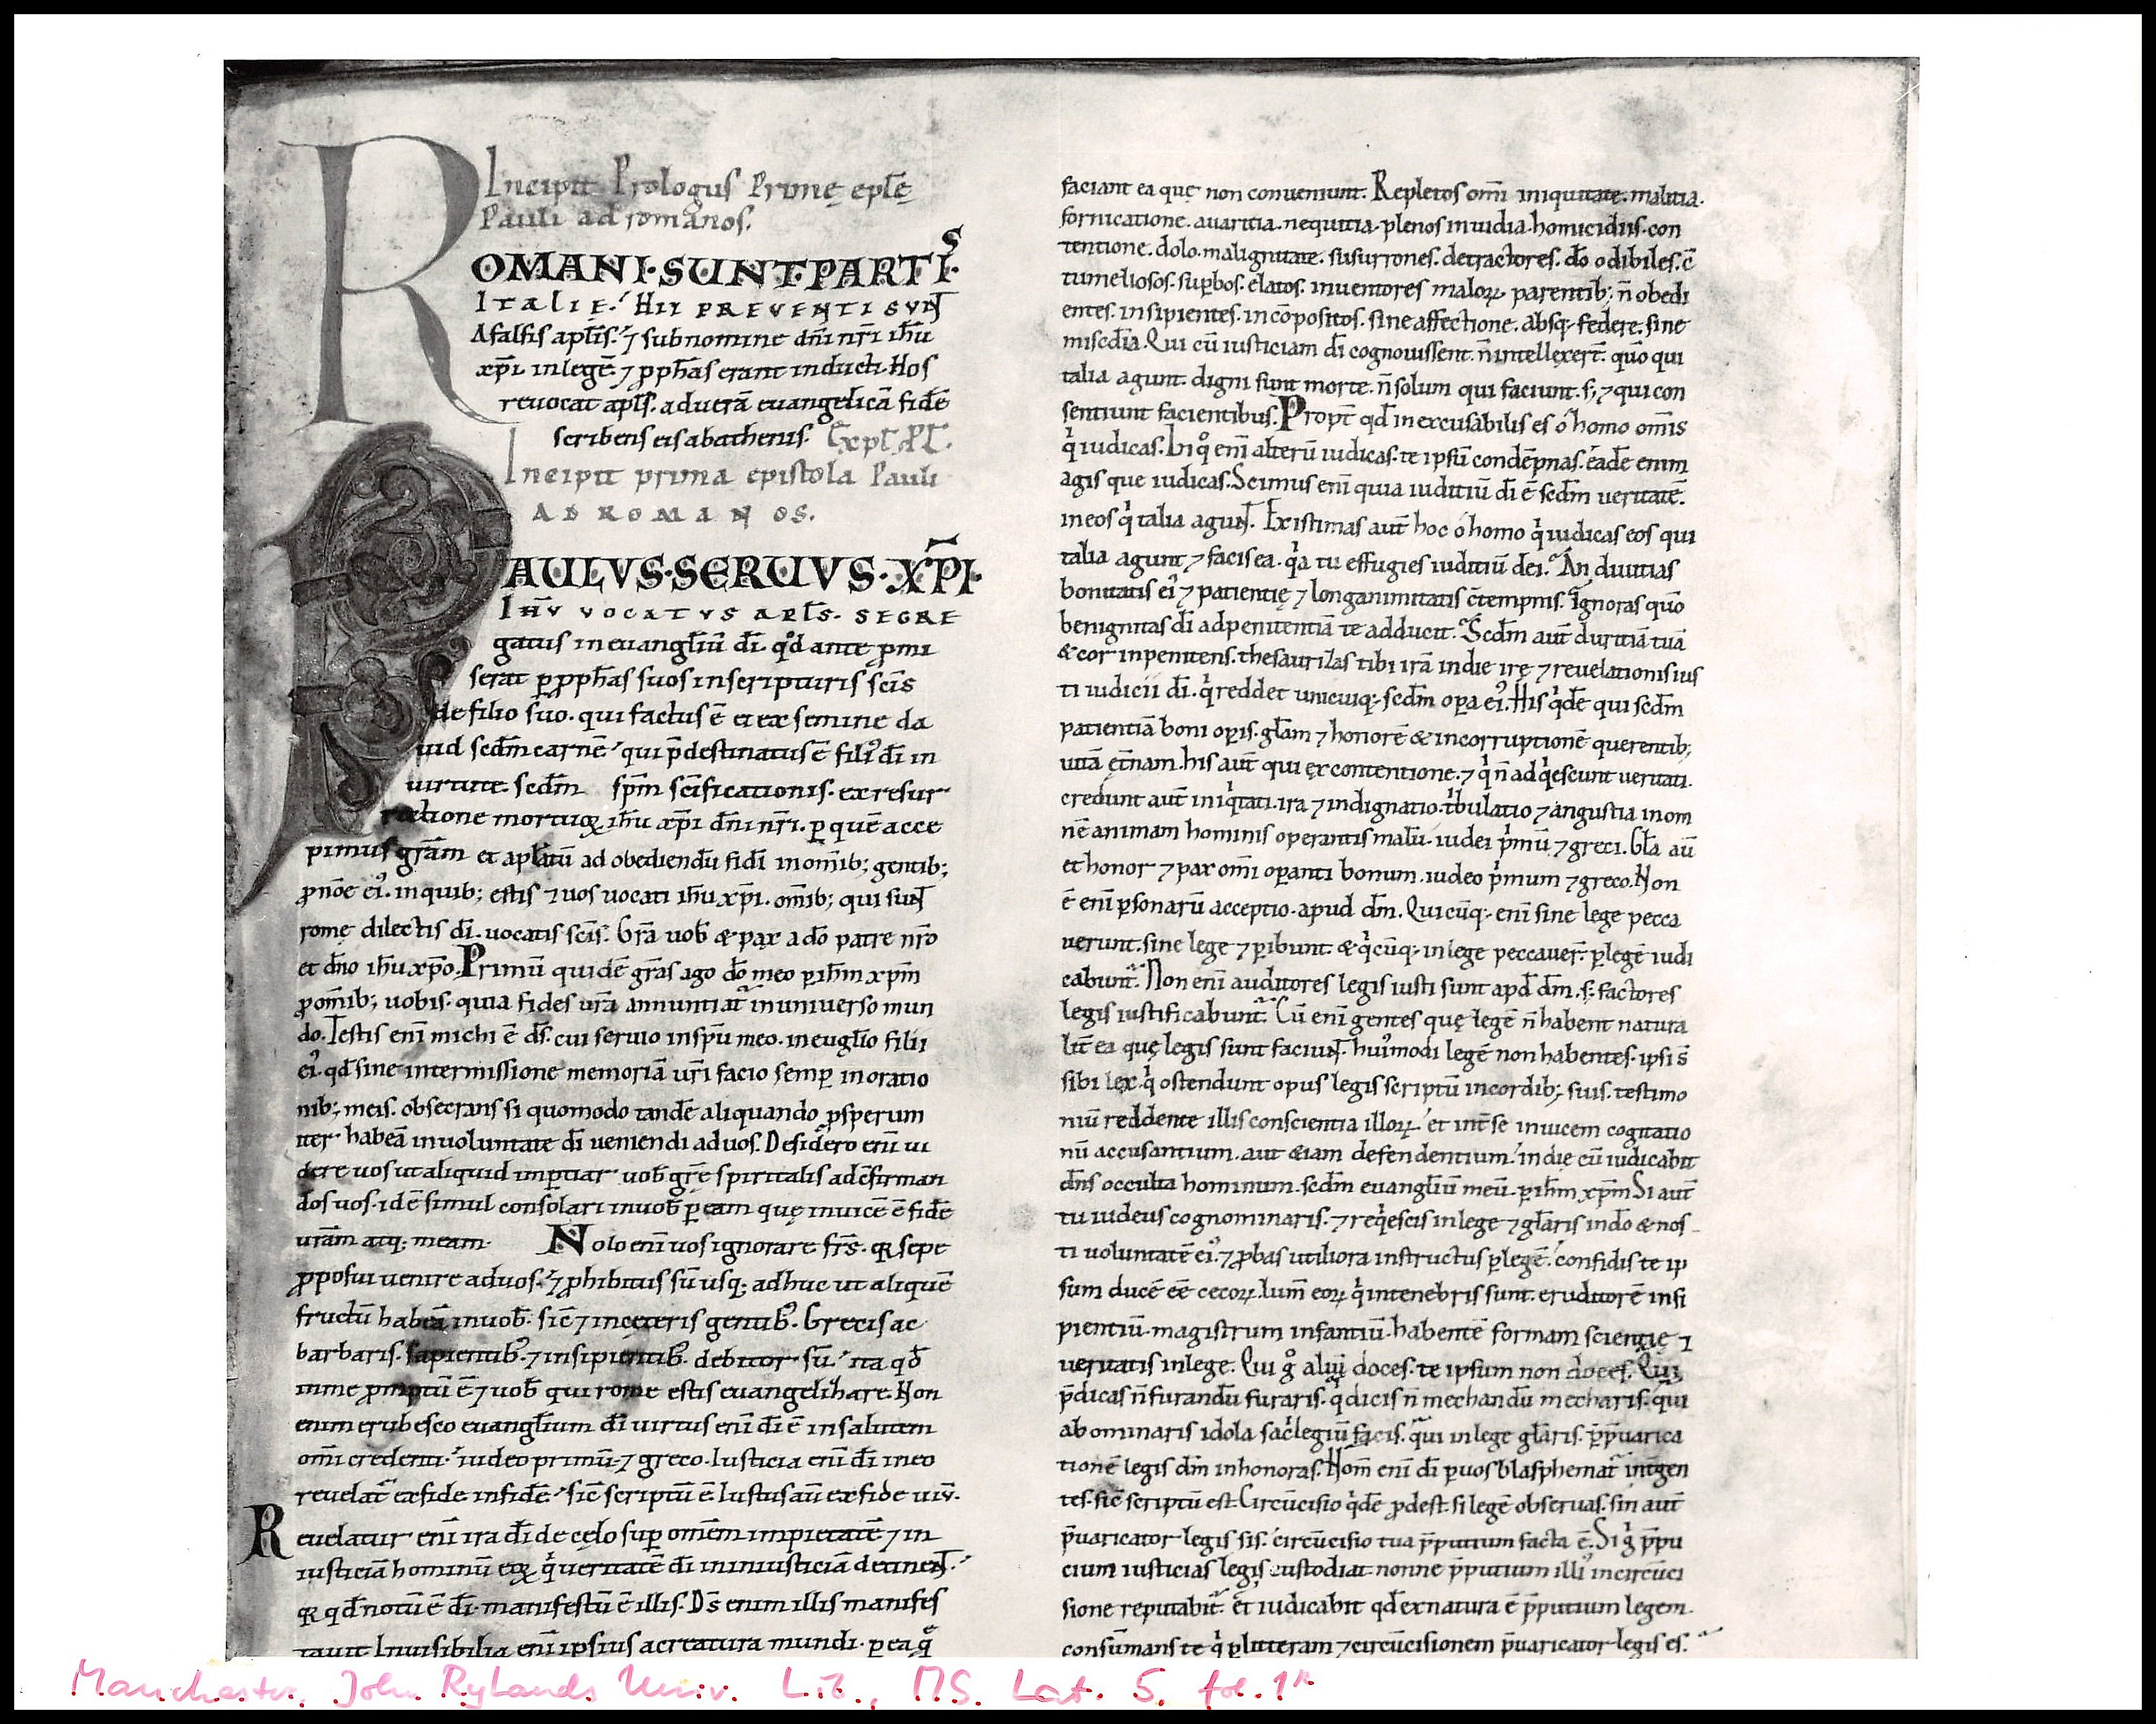 Incipit Prologus Primę eplę
Pauli ad romanos.
ROMANI·SUNT·PARTIS·
ITALIE. HII PREVENTI SUNT
A falsis aplis. ⁊ sub nomine dñi nr̃i ihũ
xp̃i in legẽ ⁊ ꝓph̃as erant inducti. Hos
reuocat apls̃. ad uerã euangelicã fidẽ
scribens eis ab athenis. Expl̃ Pl̃.
Incipit prima epistola Pauli
AD ROMANOS.
PAULVS·SERUVS·XP̃I·
IHV̄ VOCATVS APL̃S. SEGRE
gatus in euangl̃iũ dĩ. qđ ante ꝓmi
serat ꝑ ꝓph̃as suos in scripturis scĩs
de filio suo. qui factus ẽ ei ex semine da
uid scđm carnẽ qui p̃destinatus ẽ fili᾽ dĩ in
uirtute. scđm sp̃m scĩficationis. ex resur
rectione mortuoꝝ ihũ xp̃i dñi nr̃i. ꝑ quẽ acce
pimus gr̃am et apl̃atũ ad obediendũ fidĩ in om̃ib; gentib;
ꝓ nõe ei᾽. in quib; estis ⁊ uos uocati ihũ xp̃i. om̃ib; qui sunt
romę dilectis dĩ. uocatis scĩs. Gr̃a uob̃ & pax a dõ patre nr̃o
et dño ihũ xp̃o. Primũ quidẽ gr̃as ago dõ meo ꝑ ihm̃ xp̃m
ꝓ om̃ib; uobis. quia fides ur̃a annuntiat̃ in uniuerso mun
do. Testis enĩ michi ẽ ds̃. cui seruio in sp̃u meo. in eugl̃io filii
ei᾽. qđ sine intermissione memoriã ur̃i facio semꝑ in oratio
nib; meis. obsecrans si quomodo tandẽ aliquando ꝓsperum
iter habeã in uoluntate dĩ ueniendi ad uos. Desidero enĩ ui
dere uos ut aliquid imꝑtiar uob̃ gr̃ę spiritalis ad c̃firman
dos uos. id ẽ simul consolari in uob̃ ꝑ eam quę inuicẽ ẽ fidẽ
ur̃am atq; meam. Nolo enĩ uos ignorare fr̃s. qꝛ sepe
ꝓposui uenire ad uos. ⁊ ꝓhibitus sũ usq; adhuc ut aliquẽ
fructũ habeã in uob̃. sic̃ ⁊ in cęteris gentib᾽. Grecis ac
barbaris. sapientib᾽. ⁊ insipientib᾽. debitor sũ. ita qđ
in me ꝓmptũ ẽ ⁊ uob̃ qui rome estis euangelihare. Non
enim erubesco euangl̃ium dĩ uirtus enĩ dĩ ẽ in salutem
om̃i credenti. iudeo primũ. ⁊ greco. Iusticia enĩ dĩ in eo
reuelat̃ ex fide in fidẽ. sic̃ scriptũ ẽ. Iustus aũ ex fide uiũ.
Reuelatur enĩ ira dĩ de cęlo suꝑ omẽm impietatẽ ⁊ in
iusticiã hominũ eoꝝ q̇ ueritatẽ dĩ in iniusticiã detinent.
qꝛ qđ notũ ẽ dĩ. manifestũ ẽ illis. Ds̃ enim illis manifes
tauit. Inuisibilia enĩ ipsius a creatura mundi. ꝑ ea q̃
faciant ea quę non conueniunt. Repletos om̃i iniquitate. malitia.
fornicatione. auaritia. nequitia. plenos inuidia. homicidiis. con
tentione. dolo. malignitate. susurrones. detractores. dõ odibiles. c̃
tumeliosos. suꝑbos. elatos. inuentores maloꝝ. parentib; ñ obedi
entes. insipientes. incõpositos. sine affectione. absq; federe. sine
miscđia. Qui cũ iusticiam dĩ cognouissent. ñ intellexer̃t. quõ qui
talia agunt. digni sunt morte. ñ solum qui faciunt. s; ⁊ qui con
sentiunt facientibus. Propt̃ qđ inexcusabilis es ó homo om̃is
q̇ iudicas. In q̊ enĩ alterũ iudicas. te ipsũ condẽpnas. éadẽ enim
agis que iudicas. Scimus enĩ quia iuditiũ dĩ ẽ scđm ueritatẽ.
in eos q̇ talia agunt. Existimas aut̃ hoc ó homo q̇ iudicas eos qui
talia agunt ⁊ facis ea. q̇a tu effugies iuditiũ dei. An diuitias
bonitatis ei᾽ ⁊ patientię ⁊ longanimitatis c̃tempnis. Ignoras quõ
benignitas dĩ ad penitentiã te adducit. Scđm aut̃ duritiã tuã
& cor inpenitens. thesaurizas tibi irã in die irę ⁊ reuelationis ius
ti iudicii dĩ. q̇ reddet unicuiq; scđm oꝑa ei᾽. His q̇dẽ qui scđm
patientiã boni oꝑis. gl̃am ⁊ honorẽ & incorruptionẽ querentib;
uitã ęt̃nam. his aut̃ qui ex contentione. ⁊ q̇ ñ adq̇escunt ueritati.
credunt aut̃ iniq̇tati. ira ⁊ indignatio. tb̾ulatio ⁊ angustia in om
nẽ animam hominis operantis malũ. iudei p̾mũ ⁊ greci. Gl̃a aũ
et honor ⁊ pax om̃i oꝑanti bonum. iudeo p̾mum ⁊ greco. Non
ẽ enĩ ꝑsonarũ acceptio. apud dm̃. Quicũq; enĩ sine lege pecca
uerunt. sine lege ⁊ ꝑibunt. & q̇cũq; in lege peccauer̃. ꝑ legẽ iudi
cabunt̃. Non enĩ auditores legis iusti sunt apđ dm̃. s; factores
legis iustificabunt̃. Cũ enĩ gentes quę legẽ ñ habent natura
lit̃ ea quę legis sunt faciunt. hui᾽modi legẽ non habentes. ipsi s̃
sibi lex. q̇ ostendunt opus legis scriptũ in cordib; suis. testimo
niũ reddente illis conscientia illoꝝ. et int̃ se inuicem cogitatio
nũ accusantium. aut &iam defendentium. in die cũ iudicabit
dñs occulta hominum. scđm euangl̃iũ meũ. ꝑ ihm̃ xp̃m Si aut̃
tu iudeus cognominaris. ⁊ req̇escis in lege ⁊ gl̃aris in dõ & nos
ti uoluntatẽ ei᾽. ⁊ ꝓbas utiliora instructus ꝑ legẽ. confidis te ip
sum ducẽ ẽe cecoꝝ. lum̃ eoꝝ q̇ in tenebris sunt. eruditorẽ insi
pientiũ. magistrum infantiũ. habentẽ formam scientię ⁊
ueritatis in lege. Qui g̊ aliũ doces. te ipsum non doces. Qui
p̃dicas ñ furandũ furaris. q̇ dicis ñ mechandũ mecharis. qui
abominaris idola sac̾legiũ facis. qui in lege gl̃aris. p̃ p̃uarica
tionẽ legis dm̃ inhonoras. Nom̃ enĩ dĩ ꝑ uos blasphemat̃ int̃ gen
tes. sic̃ scriptũ est. Circũcisio q̇dẽ ꝓdest. si legẽ obseruas. sin aut̃
p̃uaricator legis sis. circũcisio tua p̃putium facta ẽ. Si g̊ p̃pu
cium iusticias legis custodiat. nonne p̃putium illi᾽ in circũci
sione reputabit̃. et iudicabit qđ ex natura ẽ p̃putium legem.
consũmans te q̇ ꝑ litteram ⁊ circũcisionem p̃uaricator legis es.
Manchester, John Rylands Univ. Lib., MS. Lat. 5, fol. 1r